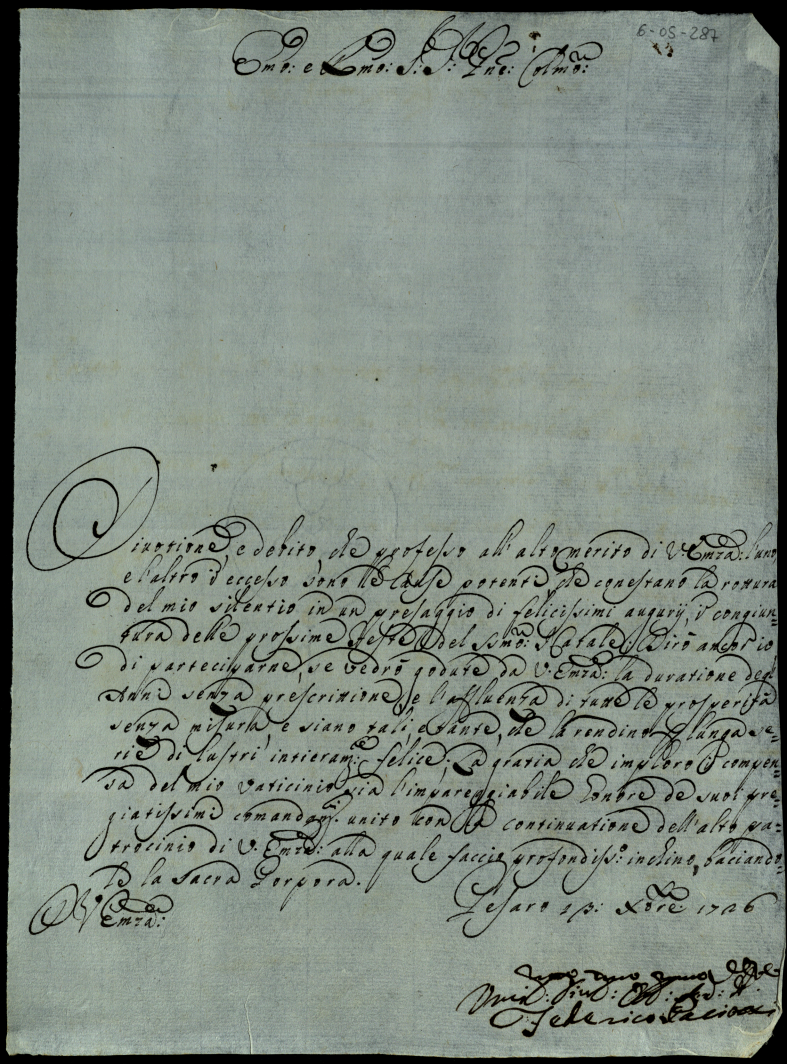 6-05-287
Emo: e Rmo: S: S: Pne: Colmo:
Divotione, e debito, che professo all'alto merito di V. Emza: l'uno
e l'altro d'eccesso sono le cause potenti che conestano la rottura
del mio silentio in un presaggio di felicissimi augurij in congiun=
tura delle prossime Feste del Ssmo: Natale. Dirò ancor io
di participarne, se vedrò godute da V. Emza: la duratione degl'
Anni senza prescrittione, e l'affluenza di tutte le prosperità
senza misura, e siano tali, e tante, che la rendino p lunga se=
rie di lustri intieramte: felice. La gratia che imploro in compen=
sa del mio vaticinio sia l'impareggiabile honore de suoi pre=
giatissimi comandi, unito con la continuatione dell'alto pa=
trocinio di V. Emza: alla quale faccio profondiss:o inchino, baciando=
le la sacra Porpora.
D V Emza:
Pesaro 13: Xbre: 1726
Federico